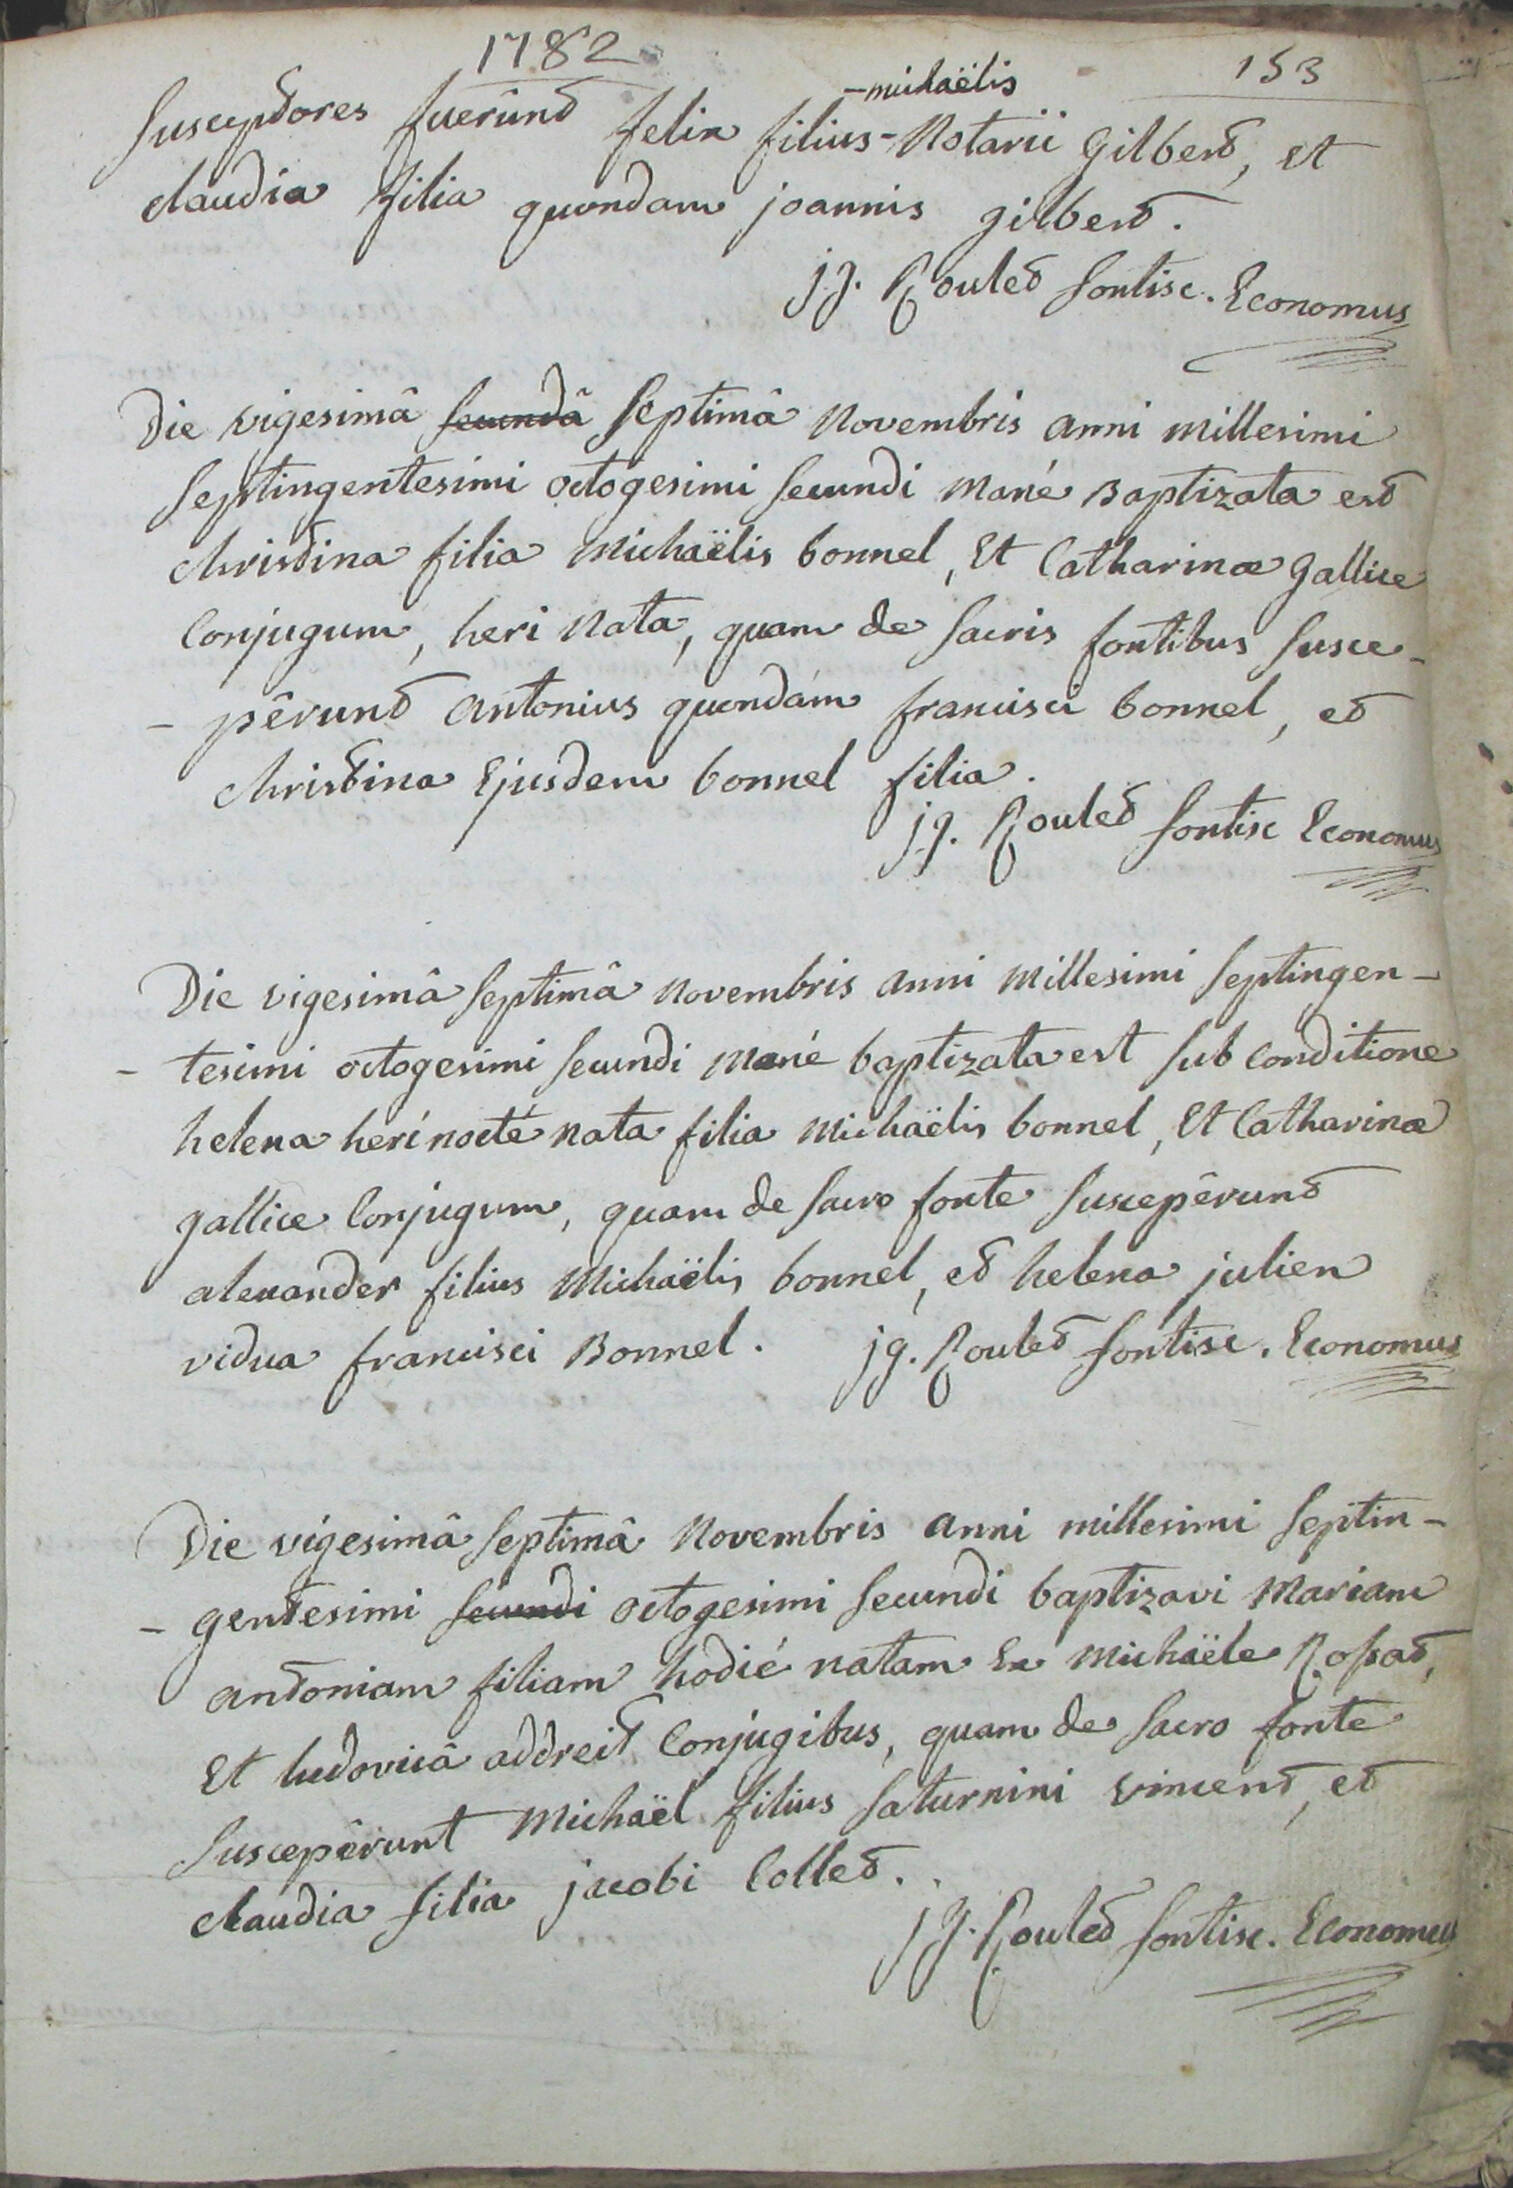 1782
153
-michaëlis
Susceptores fuêrunt felix filius-Notarii Gilbert, et
claudia filia quondam joannis gilbert.
jg. Roulet fontisc. Economus
Die vigesimâ secundâ septimâ Novembris anni millesimi
septingentesimi octogesimi secundi manè Baptizata est
christina filia Michaëlis bonnel, et Catharinæ gallice
Conjugum, heri nata, quam de sacris fontibus susce-
- pêrunt antonius quondam francisci bonnel, et
christina ejusdem bonnel filia.
jg. Roulet fontisc Economus
Die vigesimâ septimâ novembris anni millesimi septingen-
- tesimi octogesimi secundi manè baptizata est sub conditione
helena heri nocté nata filia Michaëlis bonnel, et Catharinæ
gallice Conjugum, quam de sacro fonte suscepêrunt
alexander filius Michaëlis bonnel, et helena julien
vidua francisci Bonnel. jg. Roulet fontisc. Economus
Die vigesimâ septimâ Novembris anni millesimi septin-
- gentesimi secundi octogesimi secundi baptizavi Mariam
antoniam filiam hodiè natam ex Michaële Rossat,
et ludovicâ addreit Conjugibus, quam de sacro fonte
suscepêrunt Michaël filius saturnini vincent, et
claudia filia jacobi Collet.
jg. Roulet fontisc. Economus